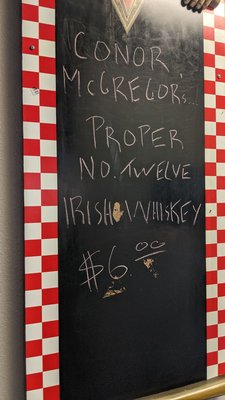 CONOR
McGREGOR's...
PROPER
NO. TWELVE
IRISH WHISKEY
$6.00